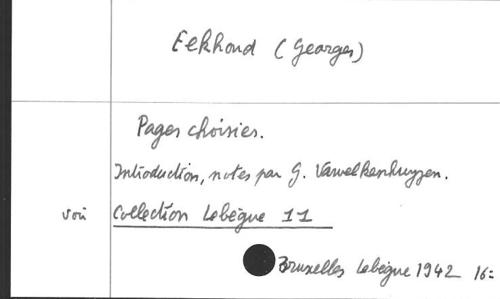 Eekhoud (Georges)
Pages choisies.
Introduction, notes par G. Vanwelkenhuyzen.
voir Collection Lebègue 11
Bruxelles Lebègue 1942 16=